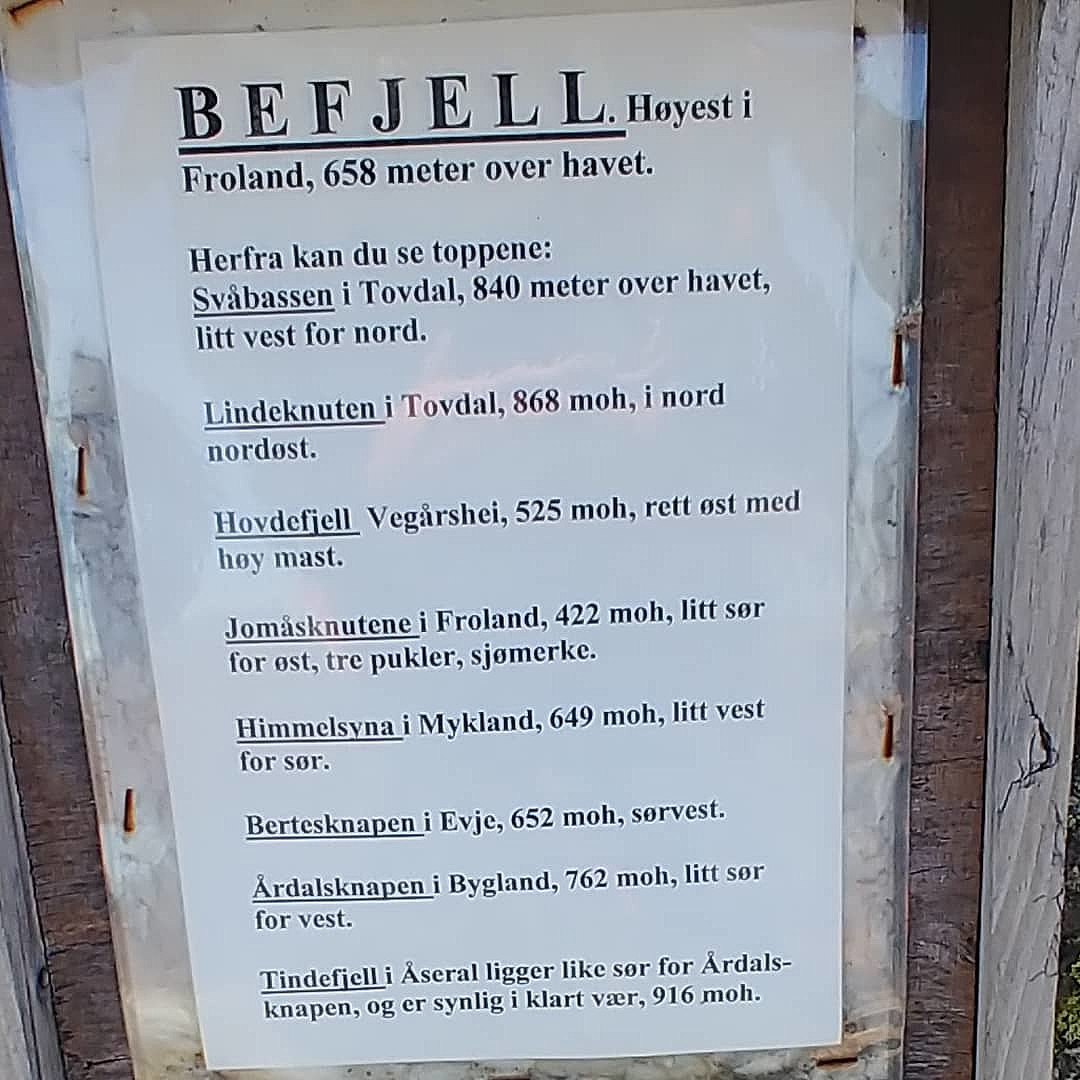 BEFJELL. Høyest i
Froland, 658 meter over havet.
Herfra kan du se toppene:
Svåbassen i Tovdal, 840 meter over havet,
litt vest for nord.
Lindeknuten i Tovdal, 868 moh, i nord
nordøst.
Hovdefjell Vegårshei, 525 moh, rett øst med
høy mast.
Jomåsknutene i Froland, 422 moh, litt sør
for øst, tre pukler, sjømerke.
Himmelsyna i Mykland, 649 moh, litt vest
for sør.
Bertesknapen i Evje, 652 moh, sørvest.
Årdalsknapen i Bygland, 762 moh, litt sør
for vest.
Tindefjell i Åseral ligger like sør for Årdals-
knapen, og er synlig i klart vær, 916 moh.